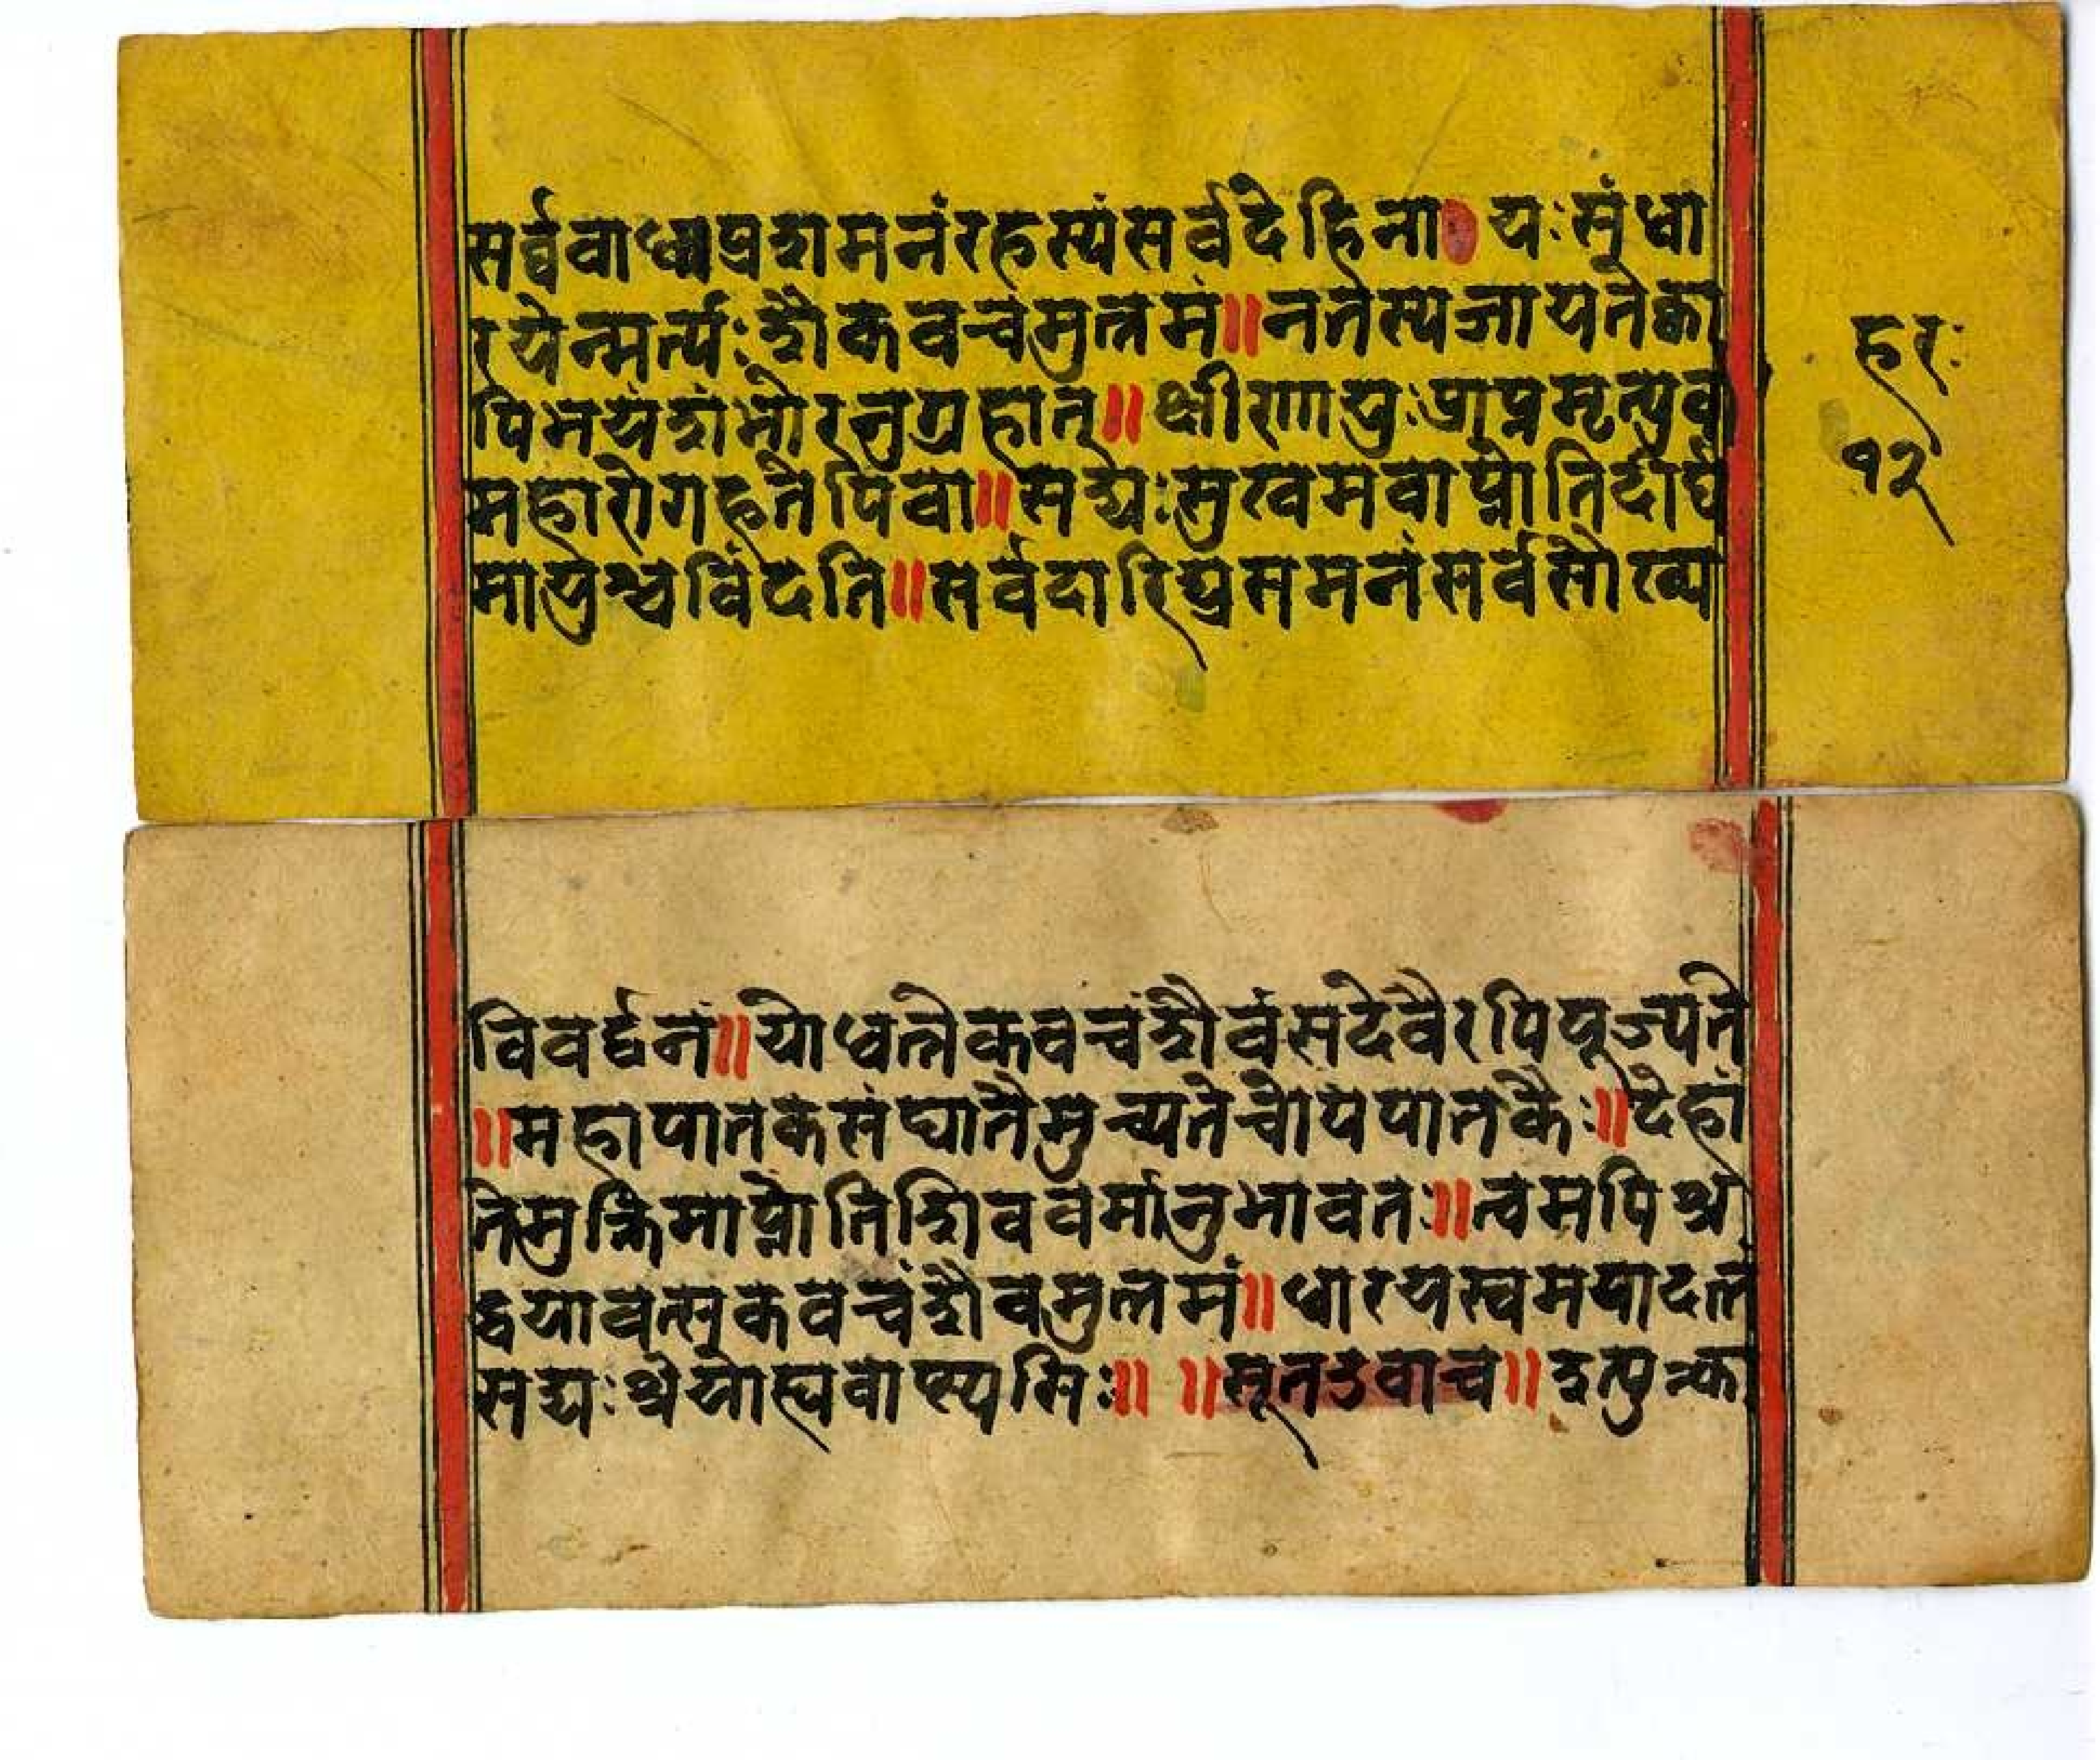 सर्व्ववाधाप्रशमनंरहस्यंसर्वदेहिना यःसंधा
रयेन्मर्त्यःशैकवचमुत्तमं॥नतस्यजायतेक्वा
पिभयंशंभोरनुग्रहात्॥क्षीणायुःप्राप्नमृत्युर्वा
महारोगहतेपिवा॥सद्यःसुखमवाप्नोतिदीर्घ
मायुश्चविंदति॥सर्वदारिद्र्यसमनंसर्वसौख्य
हरः
१२
विवर्द्धनं॥योधत्तेकवचंशैवंसदेवैरपिपूज्यते
॥महापातकसंघातैमुच्यतेचोपपातकैः॥देहां
तेमुक्तिमाप्नोतिशिववर्मानुभावतः॥त्वमपिश्र
द्धयावत्सकवचंशैवमुत्तमं॥धारयस्वमयादत्तं
सद्यःश्रेयोह्यवाप्स्यसिः॥ ॥सूतउवाच॥इत्युक्त्का